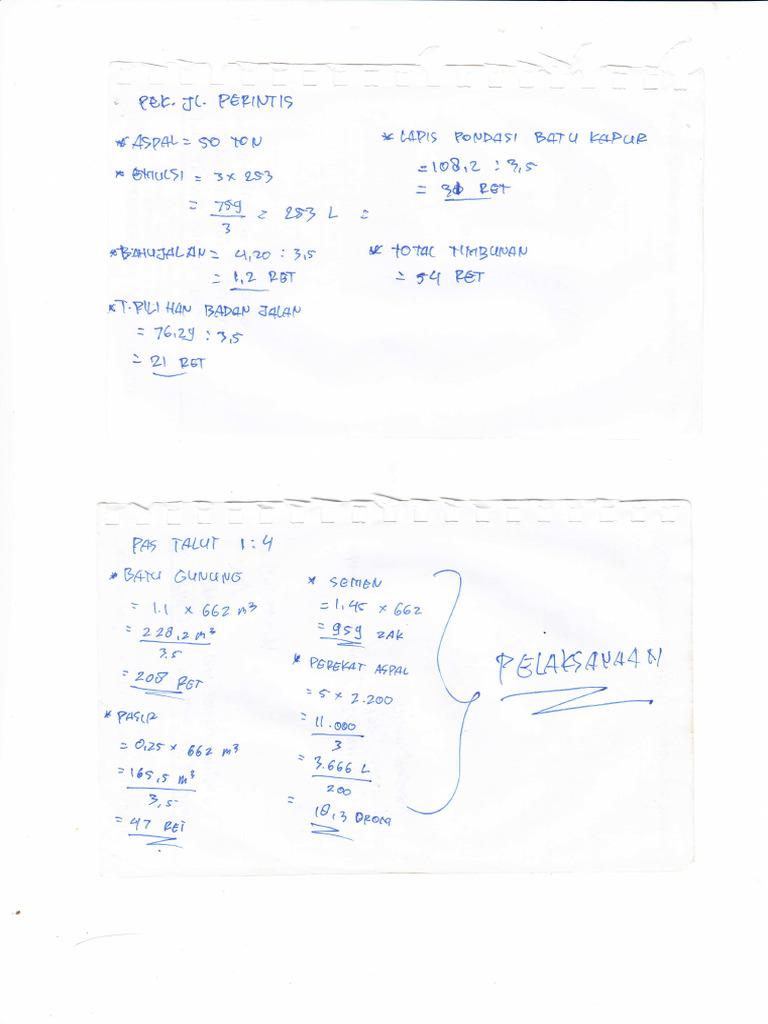 PEK. JL. PERINTIS
* ASPAL = 50 TON
* EMULSI = 3 x 253
= 759
3
= 253 L =
* BAHUJALAN = 4,20 : 3,5
= 1,2 RET
* T. PILIHAN BADAN JALAN
= 76,29 : 3,5
= 21 RET
* LAPIS PONDASI BATU KAPUR
= 108,2 : 3,5
= 31 RET
* TOTAL TIMBUNAN
= 54 RET
PAS TALUT 1 : 4
* BATU GUNUNG
= 1.1 x 662 m³
= 728,2 m³
3.5
= 208 RET
* PASIR
= 0,25 x 662 m³
= 165,5 m³
3,5
= 47 RET
* SEMEN
= 1,45 x 662
= 959 ZAK
* PEREKAT ASPAL
= 5 x 2.200
= 11.000
3
= 3.666 L
200
= 18,3 DROM
PELAKSANAAN